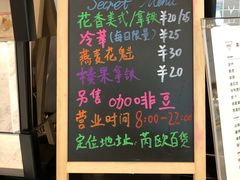 Secret Menu
花香美式/拿铁 ¥20/25
冷萃(每日限量) ¥25
燕麦花魁 ¥30
榛果拿铁 ¥20
另售 咖啡豆
营业时间 8:00-22:00
定位地址:芮欧百货